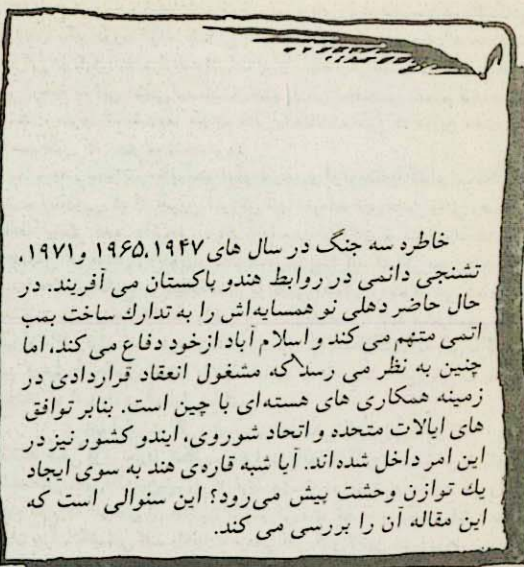 خاطره سه جنگ در سال های ۱۹۴۷،۱۹۶۵ و ۱۹۷۱،
تشنجی دائمی در روابط هندو پاکستان می آفریند. در
حال حاضر دهلی نو همسایه‌اش را به تدارك ساخت بمب
اتمی متهم می کند و اسلام آباد ازخود دفاع می کند، اما
چنین به نظر می رسد که مشغول انعقاد قراردادی در
زمینه همکاری های هسته‌ای با چین است. بنابر توافق
های ایالات متحده و اتحاد شوروی، ایندو کشور نیز در
این امر داخل شده‌اند. آیا شبه قاره‌ی هند به سوی ایجاد
یك توازن وحشت پیش می‌رود؟ این سئوالی است که
این مقاله آن را بررسی می کند.